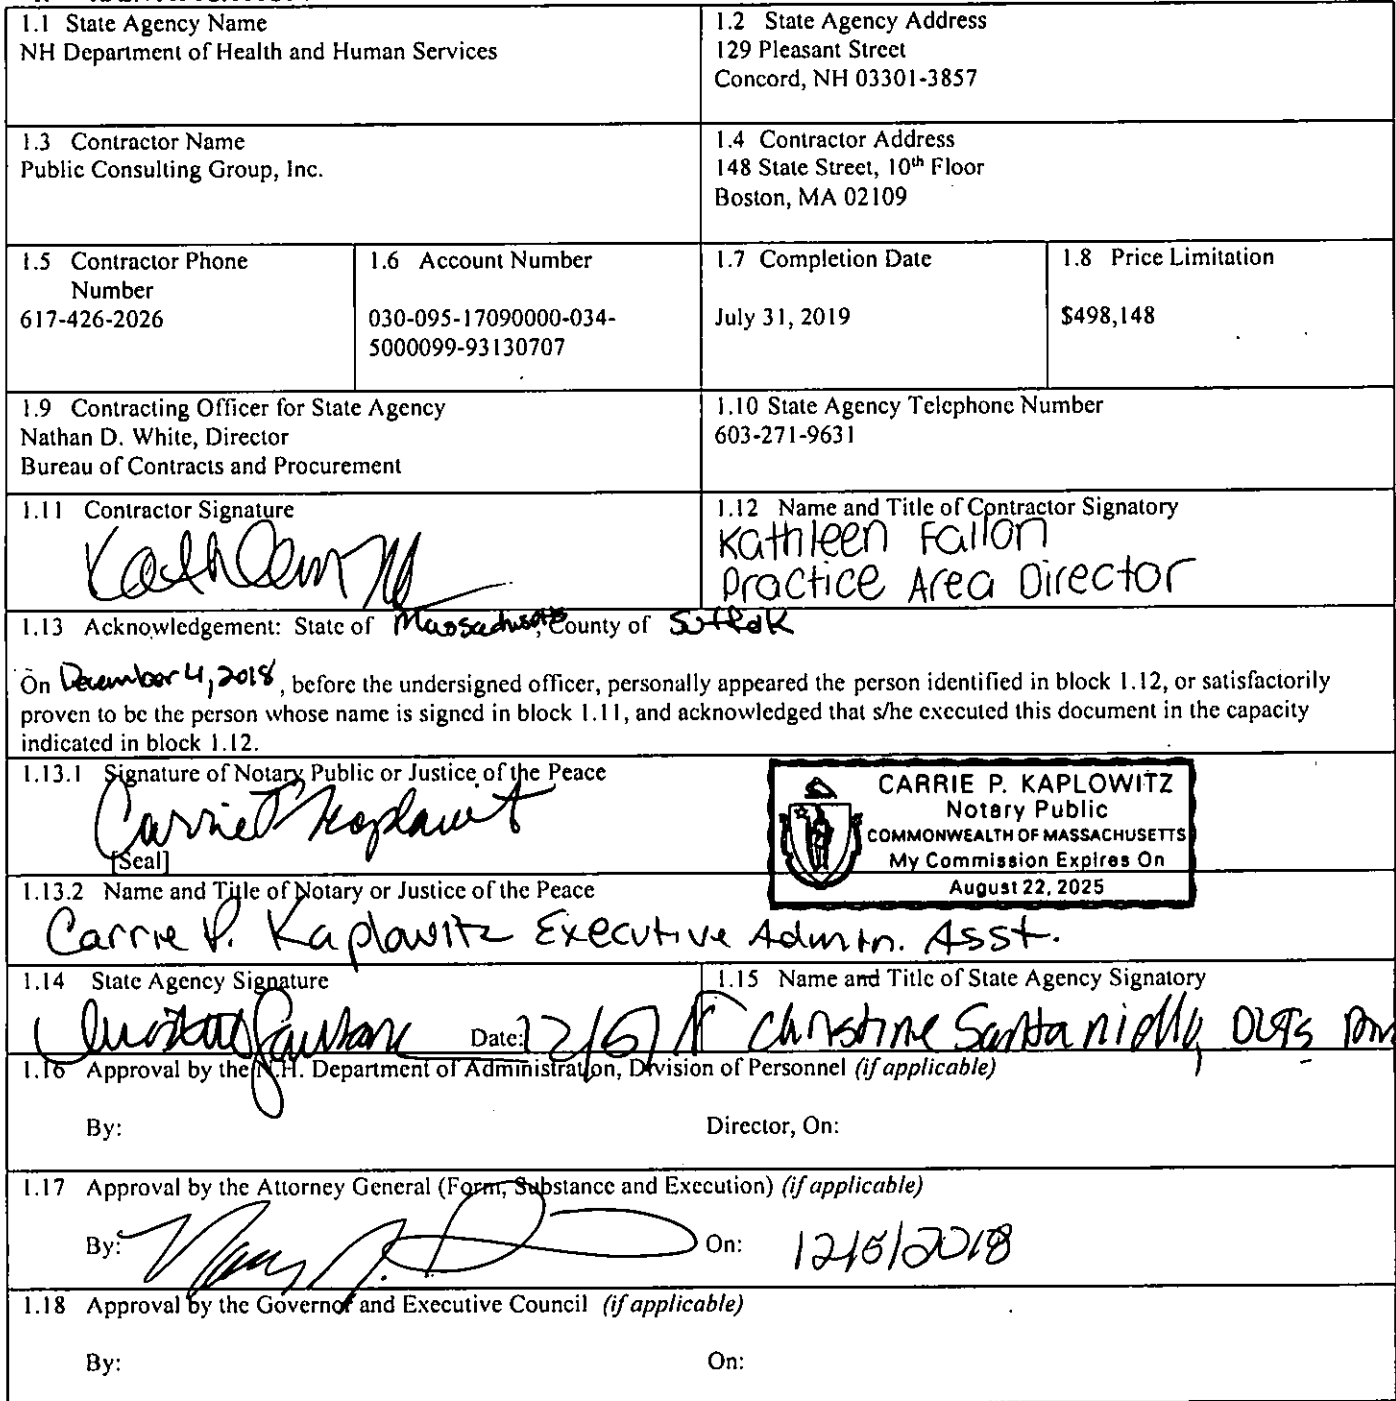 1.1 State Agency Name
NH Department of Health and Human Services
1.2 State Agency Address
129 Pleasant Street
Concord, NH 03301-3857
1.3 Contractor Name
Public Consulting Group, Inc.
1.4 Contractor Address
148 State Street, 10th Floor
Boston, MA 02109
1.5 Contractor Phone
Number
617-426-2026
1.6 Account Number
030-095-17090000-034-
5000099-93130707
1.7 Completion Date
July 31, 2019
1.8 Price Limitation
$498,148
1.9 Contracting Officer for State Agency
Nathan D. White, Director
Bureau of Contracts and Procurement
1.10 State Agency Telephone Number
603-271-9631
1.11 Contractor Signature
Kathleen
1.12 Name and Title of Contractor Signatory
Kathleen Fallon
Practice Area Director
1.13 Acknowledgement: State of Massachusetts, County of Suffolk
On December 4, 2018, before the undersigned officer, personally appeared the person identified in block 1.12, or satisfactorily
proven to be the person whose name is signed in block 1.11, and acknowledged that s/he executed this document in the capacity
indicated in block 1.12.
1.13.1 Signature of Notary Public or Justice of the Peace
Carrie P Kaplowitz
[Seal]
CARRIE P. KAPLOWITZ
Notary Public
COMMONWEALTH OF MASSACHUSETTS
My Commission Expires On
August 22, 2025
1.13.2 Name and Title of Notary or Justice of the Peace
Carrie P. Kaplowitz Executive Admin. Asst.
1.14 State Agency Signature
Date:
1.15 Name and Title of State Agency Signatory
Christine Santaniello,
1.16 Approval by the N.H. Department of Administration, Division of Personnel (if applicable)
By:
Director, On:
1.17 Approval by the Attorney General (Form, Substance and Execution) (if applicable)
By:
On: 12/5/2018
1.18 Approval by the Governor and Executive Council (if applicable)
By:
On: